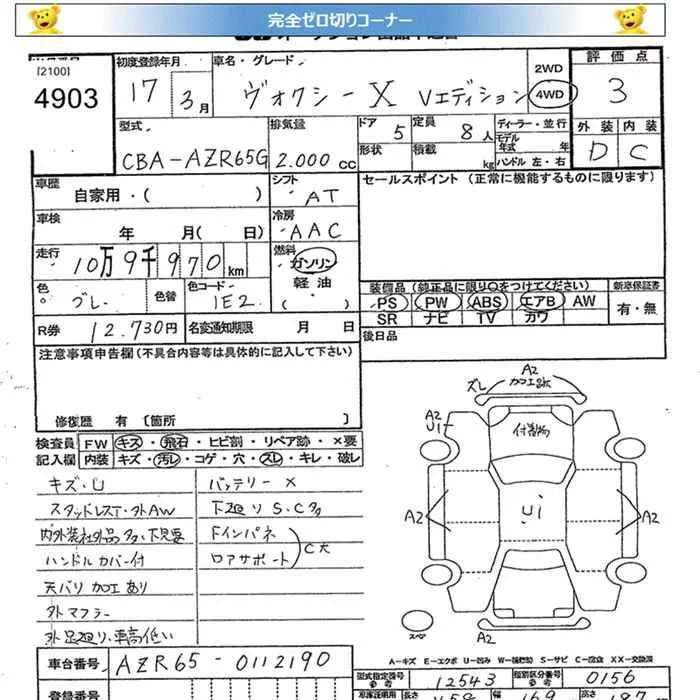 完全ゼロ切りコーナー
[2100]
4903
初度登録年月
17 3月
車名・グレード
ヴォクシー X Vエディション
2WD
4WD
評価点
3
型式
CBA-AZR65G
排気量
2.000 cc
ドア 5
定員 8人
形状
積載 kg
ディーラー・並行
モデル年式 年式
ハンドル 左・右
外装 内装
D C
車歴
自家用・( )
シフト
AT
セールスポイント (正常に機能するものに限ります)
車検
年 月( 日)
冷房
AAC
走行
10万9千970km
燃料
ガソリン
軽油
( )
色
グレー
色替
色コード
1E2
装備品 (純正品に限り○をつけてください)
新車保証書
PS PW ABS エアB AW
SR ナビ TV カワ
有・無
R券 12.730円
名変通知期限 月 日
後日品
注意事項申告欄(不具合内容等は具体的に記入して下さい)
修復歴 有 [箇所 ]
検査員 FW キズ・飛石・ヒビ割・リペア跡・×要
記入欄 内装 キズ・汚レ・コゲ・穴・スレ・キレ・破レ
キズ・U
スタッドレスT・外AW
内外装社外品多
ハンドルカバー付
天バリ加工あり
外マフラー
外足廻り、車高低い
バッテリーX
下廻りS.C多
Fインパネ
ロアサポート
C大
A2
ズレ 加工跡
A2
U1
付着物
A2
Ui
A2
スペア
A2
A-キズ E-エクボ U-凹み W-補修跡 S-サビ C-腐食 XX-交換済
車台番号 AZR65-0112190
型式指定番号 参考 12543
類別区分番号 参考 0156
登録番号
長さ
幅
高さ